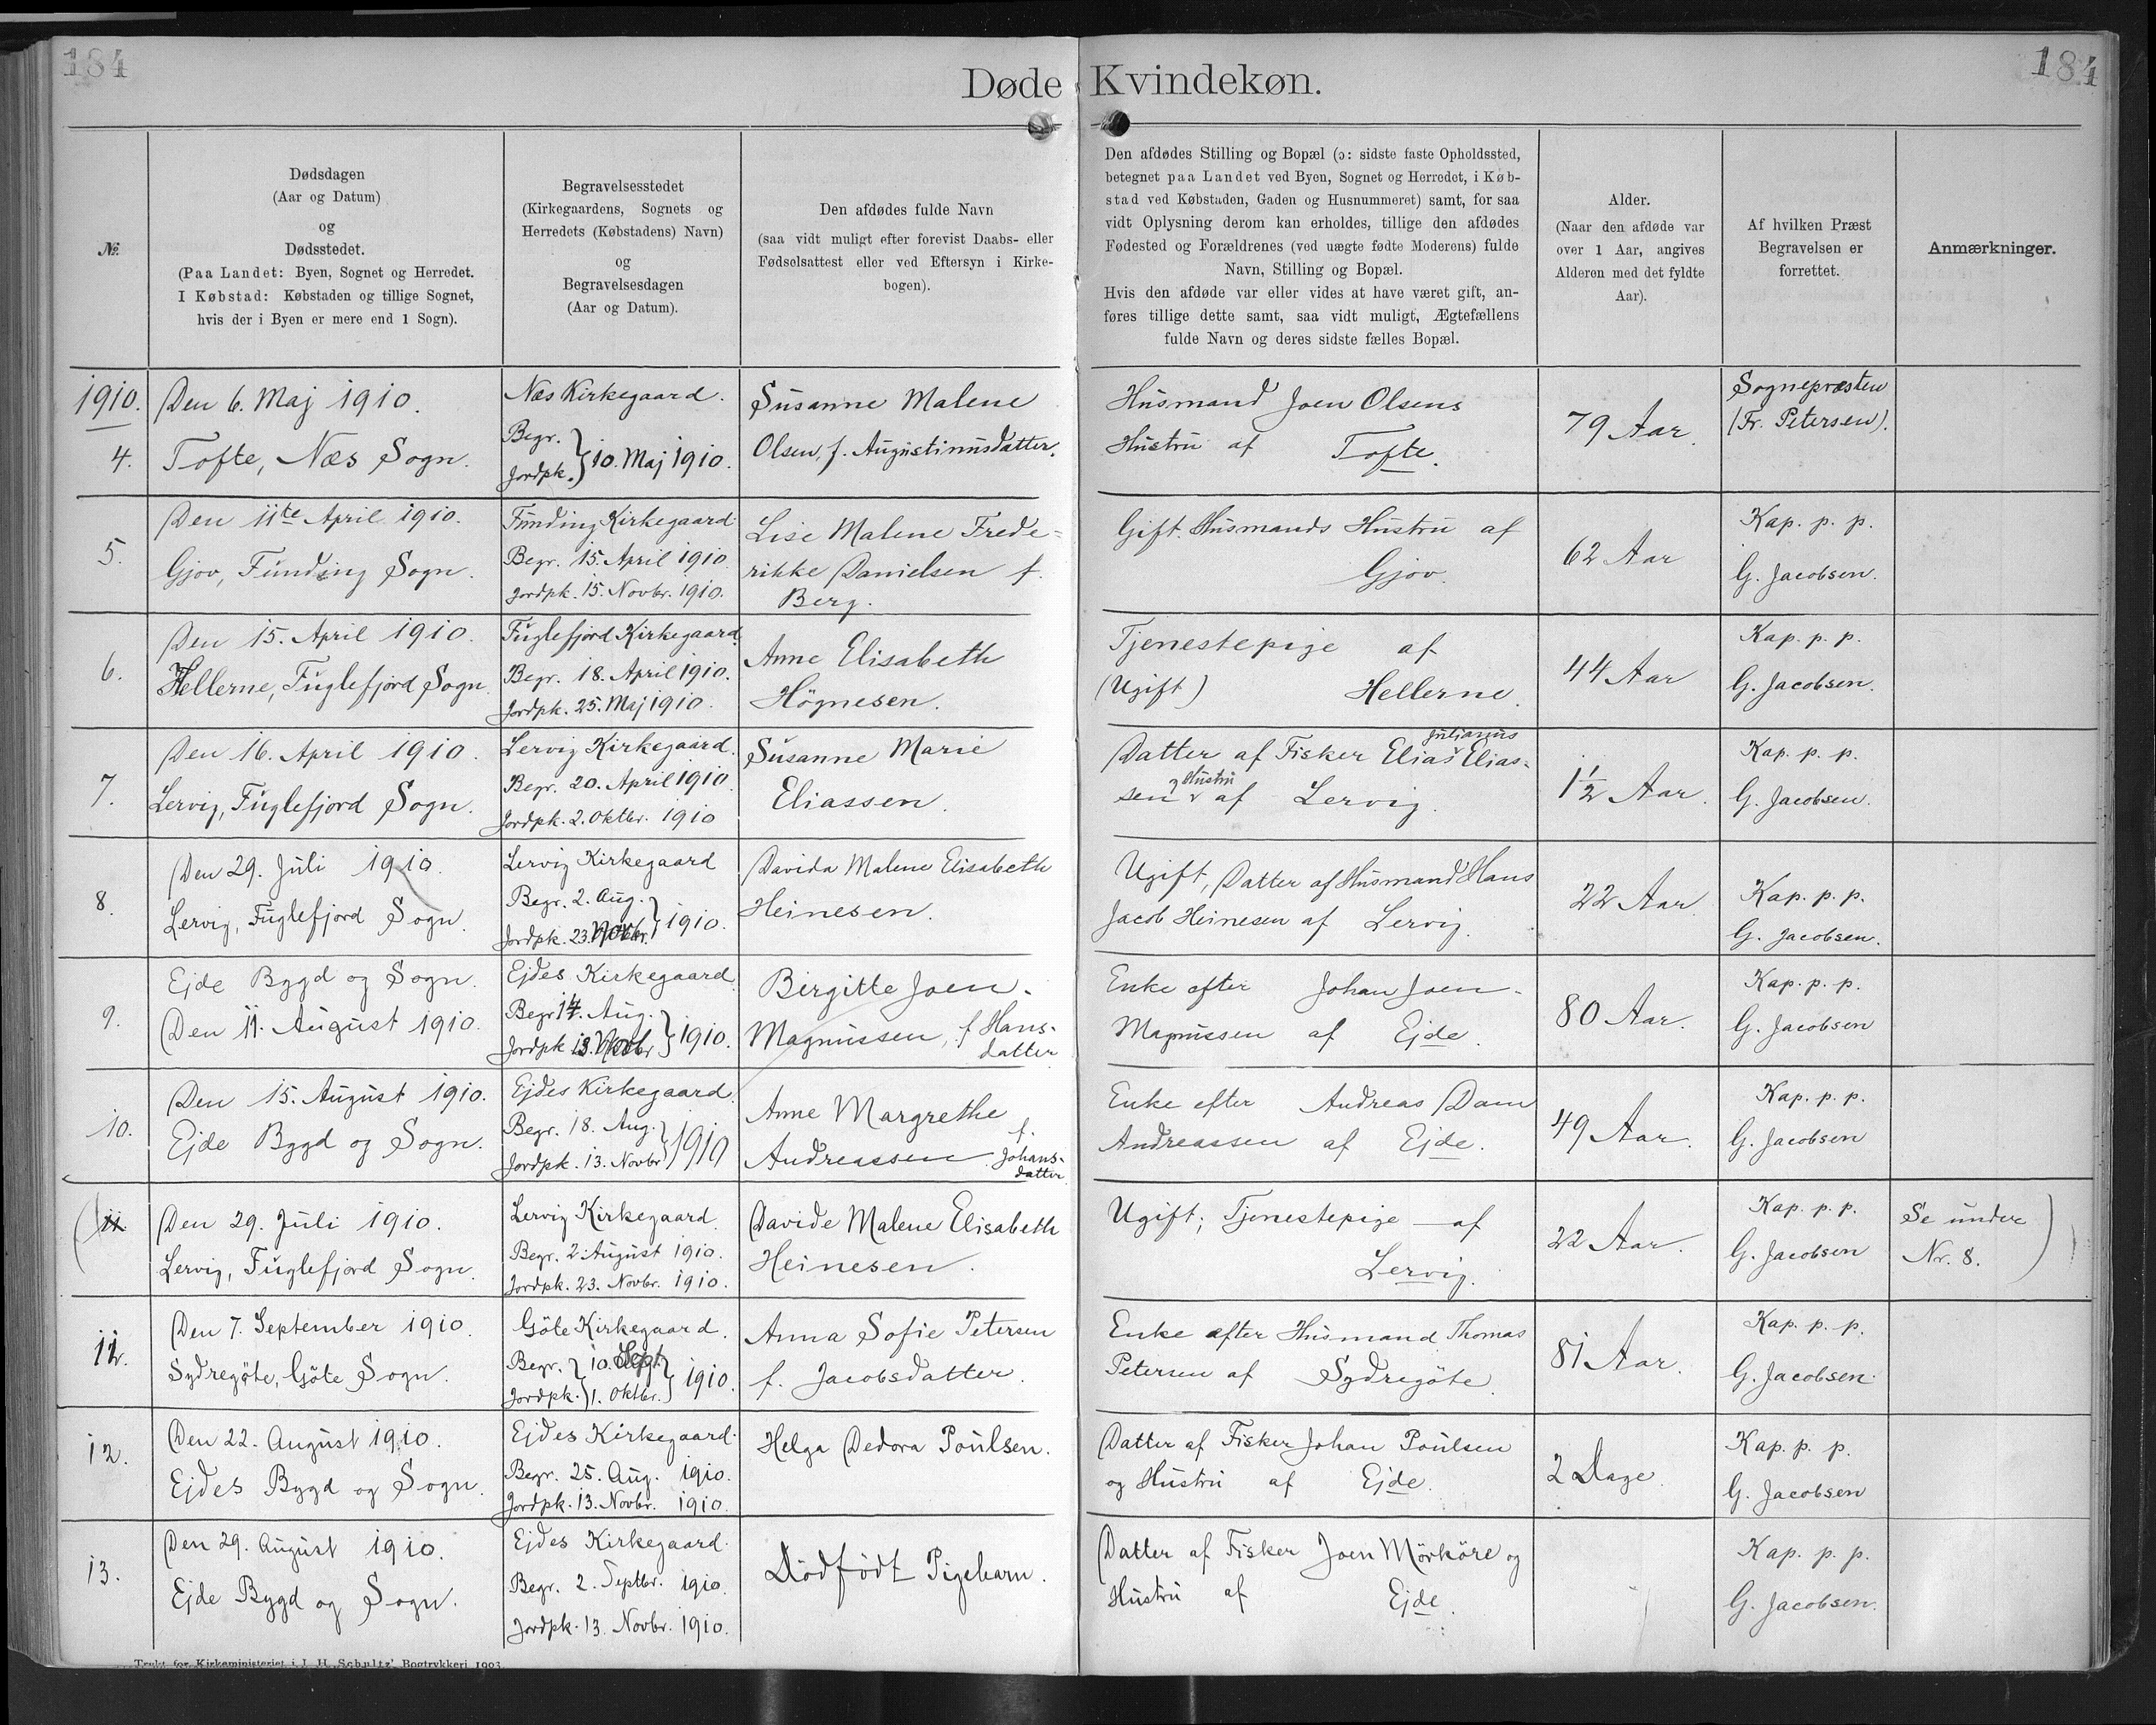 184
184
Døde Kvindekøn.
№.
Dødsdagen
(Aar og Datum)
og
Dødsstedet.
(Paa Landet: Byen, Sognet og Herredet.
I Købstad: Købstaden og tillige Sognet,
hvis der i Byen er mere end 1 Sogn).
Begravelsesstedet
(Kirkegaardens, Sognets og
Herredets (Købstadens) Navn)
og
Begravelsesdagen
(Aar og Datum).
Den afdødes fulde Navn
(saa vidt muligt efter forevist Daabs- eller
Fødselsattest eller ved Eftersyn i Kirke-
bogen).
Den afdødes Stilling og Bopæl (ɔ: sidste faste Opholdssted,
betegnet paa Landet ved Byen, Sognet og Herredet, i Køb-
stad ved Købstaden, Gaden og Husnummeret) samt, for saa
vidt Oplysning derom kan erholdes, tillige den afdødes
Fødested og Forældrenes (ved uægte fødte Moderens) fulde
Navn, Stilling og Bopæl.
Hvis den afdøde var eller vides at have været gift, an-
føres tillige dette samt, saa vidt muligt, Ægtefællens
fulde Navn og deres sidste fælles Bopæl.
Alder.
(Naar den afdøde var
over 1 Aar, angives
Alderen med det fyldte
Aar).
Af hvilken Præst
Begravelsen er
forrettet.
Anmærkninger.
1910.
4.
Den 6. Maj 1910.
Tofte, Næs Sogn.
Næs Kirkegaard.
Begr.
Jordpk. } 10. Maj 1910.
Susanne Malene
Olsen, f. Augustinusdatter.
Husmand Joen Olsens
Hustru af Tofte.
79 Aar.
Sognepræsten
(Fr. Petersen).
5.
Den 11te April 1910.
Gjov, Funding Sogn.
Funding Kirkegaard
Begr. 15. April 1910
Jordpk. 15. Novbr. 1910.
Lise Malene Frede=
rikke Danielsen f.
Berg.
Gift. Husmands Hustru af
Gjov.
62 Aar
Kap. p. p.
G. Jacobsen.
6.
Den 15. April 1910.
Hellerne, Fuglefjord Sogn.
Fuglefjord Kirkegaard
Begr. 18. April 1910.
Jordpk. 25. Maj 1910.
Anne Elisabeth
Högnesen.
Tjenestepige af
(Ugift) Hellerne.
44 Aar
Kap. p. p.
G. Jacobsen.
7.
Den 16. April 1910.
Lervig, Fuglefjord Sogn.
Lervig Kirkegaard.
Begr. 20. April 1910.
Jordpk. 2. Oktbr. 1910
Susanne Marie
Eliassen.
Julianus
Datter af Fisker Elias Elias=
Hustru
sen af Lervig.
1½ Aar.
Kap. p. p.
G. Jacobsen.
8.
Den 29. Juli 1910.
Lervig, Fuglefjord Sogn.
Lervig Kirkegaard
Begr. 2. Aug.
Jordpk. 23. Novbr. } 1910.
Davida Malene Elisabeth
Heinesen.
Ugift, Datter af Husmand Hans
Jacob Heinesen af Lervig.
22 Aar.
Kap. p. p.
G. Jacobsen.
9.
Ejde Bygd og Sogn.
Den 11. August 1910.
Ejdes Kirkegaard
Begr. 14. Aug.
Jordpk 13. } 1910.
Birgitte Joen-
Magnussen, f Hans-
datter
Enke efter Johan Joen-
Magnussen af Ejde.
80 Aar.
Kap. p. p.
G. Jacobsen
10.
Den 15. August 1910.
Ejde Bygd og Sogn.
Ejdes Kirkegaard.
Begr. 18. Aug.
Jordpk. 13. Novbr } 1910
Anne Margrethe
f.
Andreassen Johans-
datter
Enke efter Andreas Dam
Andreassen af Ejde.
49 Aar.
Kap. p. p.
G. Jacobsen
(11.
Den 29. Juli 1910.
Lervig, Fuglefjord Sogn.
Lervig Kirkegaard.
Begr. 2. August 1910.
Jordpk. 23. Novbr. 1910.
Davide Malene Elisabeth
Heinesen.
Ugift; Tjenestepige af
Lervig.
22 Aar.
Kap. p. p.
G. Jacobsen
Se under
Nr. 8. )
11.
Den 7. September 1910.
Sydregöte, Göte Sogn.
Göte Kirkegaard.
Begr. } 10. Sept.
Jordpk. } 1. Oktbr. } 1910.
Anna Sofie Petersen
f. Jacobsdatter.
Enke efter Husmand Thomas
Petersen af Sydregöte.
81 Aar.
Kap. p. p.
G. Jacobsen
12.
Den 22. August 1910.
Ejdes Bygd og Sogn.
Ejdes Kirkegaard.
Begr. 25. Aug. 1910.
Jordpk. 13. Novbr. 1910.
Helga Dedora Poulsen.
Datter af Fisker Johan Poulsen
og Hustru af Ejde.
2 Dage.
Kap. p. p.
G. Jacobsen
13.
Den 29. August 1910.
Ejde Bygd og Sogn.
Ejdes Kirkegaard.
Begr. 2. Septbr. 1910.
Jordpk. 13. Novbr. 1910.
Dödfødt Pigebarn.
Datter af Fisker Joen Mörköre og
Hustru af Ejde.
Kap. p. p.
G. Jacobsen.
Trykt for Kirkeministeriet i J. H. Schultz' Bogtrykkeri 1903.